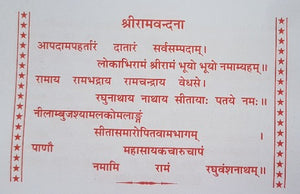 श्रीरामवन्दना
आपदामपहर्तारं दातारं सर्वसम्पदाम्।
लोकाभिरामं श्रीरामं भूयो भूयो नमाम्यहम्॥
रामाय रामभद्राय रामचन्द्राय वेधसे।
रघुनाथाय नाथाय सीतायाः पतये नमः॥
नीलाम्बुजश्यामलकोमलाङ्गं
सीतासमारोपितवामभागम् ।
पाणौ महासायकचारुचापं
नमामि रामं रघुवंशनाथम्॥